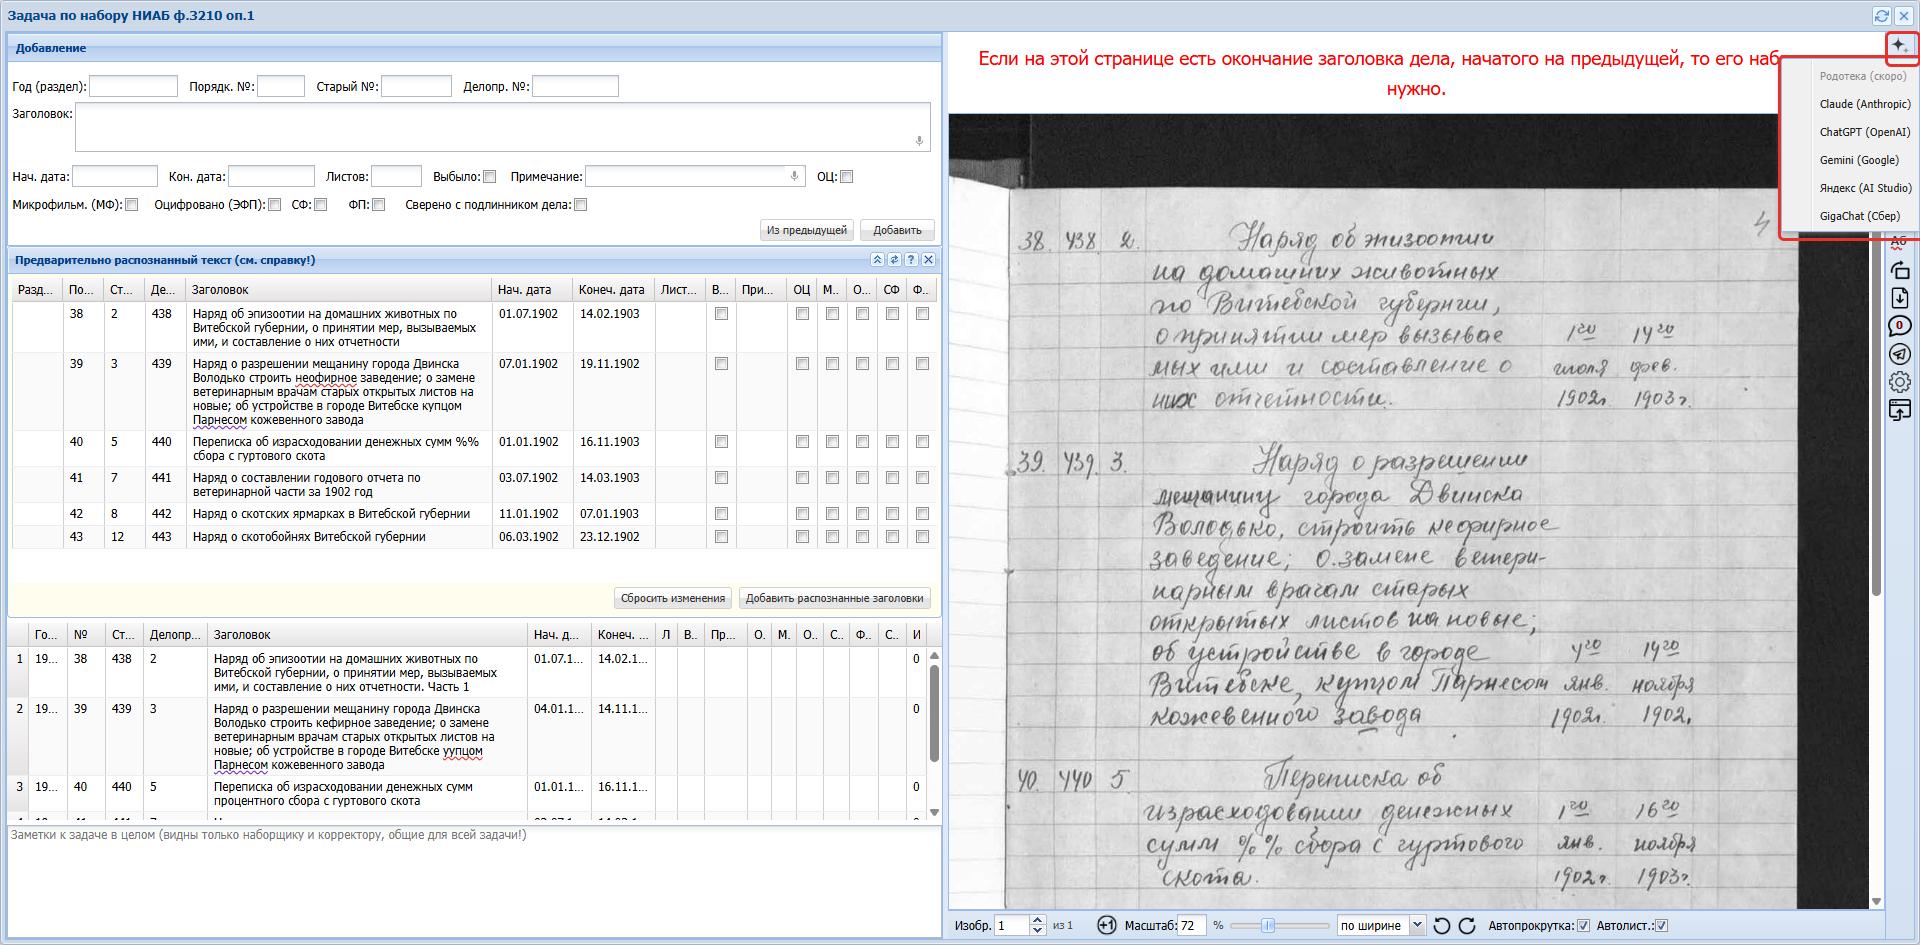 Задача по набору НИАБ ф.3210 оп.1
Добавление
Год (раздел): Порядк. №: Старый №: Делопр. №:
Заголовок:
Нач. дата: Кон. дата: Листов: Выбыло: Примечание: ОЦ:
Микрофильм. (МФ): Оцифровано (ЭФП): СФ: ФП: Сверено с подлинником дела:
Из предыдущей Добавить
Предварительно распознанный текст (см. справку!)
Разд... По... Ст... Де... Заголовок Нач. дата Конеч. дата Лист... В... При... ОЦ М.. О... СФ Ф..
38 2 438 Наряд об эпизоотии на домашних животных по 01.07.1902 14.02.1903
Витебской губернии, о принятии мер, вызываемых
ими, и составление о них отчетности
39 3 439 Наряд о разрешении мещанину города Двинска 07.01.1902 19.11.1902
Володько строить неофирное заведение; о замене
ветеринарным врачам старых открытых листов на
новые; об устройстве в городе Витебске купцом
Парнесом кожевенного завода
40 5 440 Переписка об израсходовании денежных сумм %% 01.01.1902 16.11.1903
сбора с гуртового скота
41 7 441 Наряд о составлении годового отчета по 03.07.1902 14.03.1903
ветеринарной части за 1902 год
42 8 442 Наряд о скотских ярмарках в Витебской губернии 11.01.1902 07.01.1903
43 12 443 Наряд о скотобойнях Витебской губернии 06.03.1902 23.12.1902
Сбросить изменения Добавить распознанные заголовки
Го... № Ст... Делопр... Заголовок Нач. д... Конеч. ... Л В.. Пр... О. М. О.. С.. Ф.. С.. И
1 19... 38 438 2 Наряд об эпизоотии на домашних животных по 01.07.1... 14.02.1... 0
Витебской губернии, о принятии мер, вызываемых
ими, и составление о них отчетности. Часть 1
2 19... 39 439 3 Наряд о разрешении мещанину города Двинска 04.01.1... 14.11.1... 0
Володько строить кефирное заведение; о замене
ветеринарным врачам старых открытых листов на
новые; об устройстве в городе Витебске уупцом
Парнесом кожевенного завода
3 19... 40 440 5 Переписка об израсходовании денежных сумм 01.01.1... 16.11.1... 0
процентного сбора с гуртового скота
Заметки к задаче в целом (видны только наборщику и корректору, общие для всей задачи!)
Если на этой странице есть окончание заголовка дела, начатого на предыдущей, то его наб
нужно.
Родотека (скоро)
Claude (Anthropic)
ChatGPT (OpenAI)
Gemini (Google)
Яндекс (AI Studio)
GigaChat (Сбер)
0
4
38. 438 2. Наряд об эпизоотии
на домашних животных
по Витебской губернии,
о принятии мер вызывае 1го 14го
мых ими и составление о июля фев.
них отчетности. 1902г. 1903г.
39. 439. 3. Наряд о разрешении
мещанину города Двинска
Володько, строить кефирное
заведение; о замене ветери-
нарным врачам старых
открытых листов на новые;
об устройстве в городе 4го 14го
Витебске, купцом Парнесом янв. ноября
кожевенного завода 1902г. 1902.
40. 440 5. Переписка об
израсходовании денежных 1го 16го
сумм %% сбора с гуртового янв. ноября
скота. 1902г. 1903г.
Изобр. 1 из 1 Масштаб: 72 % по ширине Автопрокрутка: Автолист.: